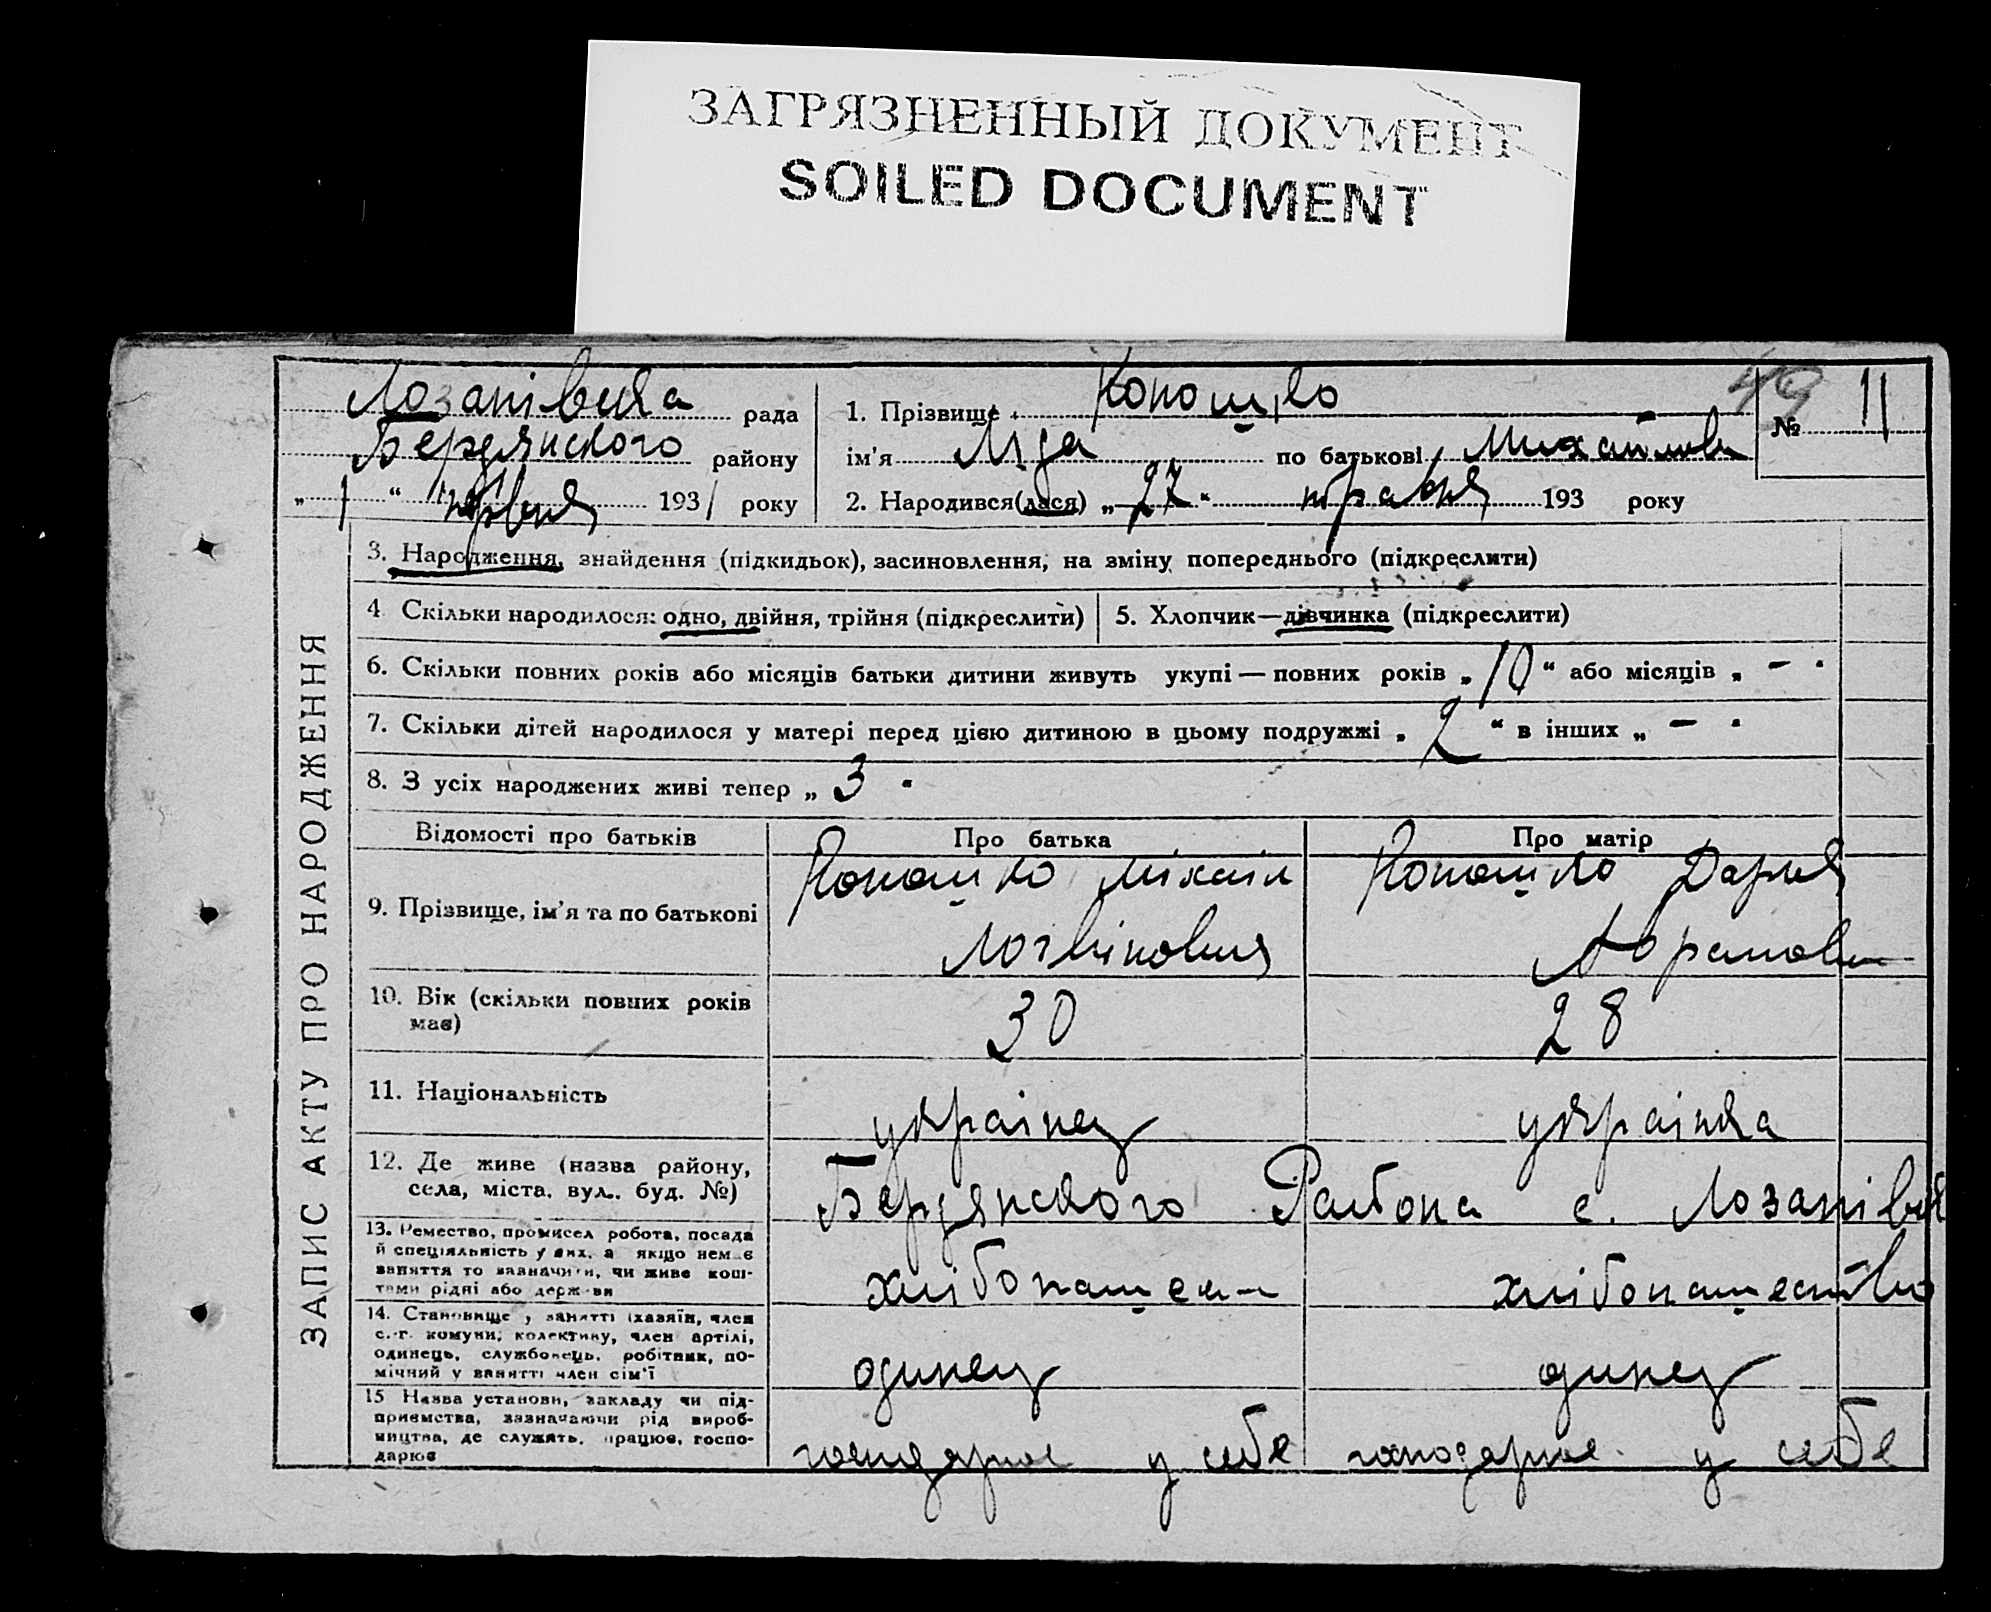 ЗАГРЯЗНЕННЫЙ ДОКУМЕНТ
SOILED DOCUMENT
49
рада
Бердянского району
„ 1 “ червня 1931 року
1. Прізвище
№ 11
ім'я Ліда по батькові
2. Народився(лася) „ 27 “ травня 193 року
ЗАПИС АКТУ ПРО НАРОДЖЕННЯ
3. Народження, знайдення (підкидьок), засиновлення, на зміну попереднього (підкреслити)
4 Скільки народилося: одно, двійня, трійня (підкреслити) 5. Хлопчик—дівчинка (підкреслити)
6. Скільки повних років або місяців батьки дитини живуть укупі — повних років „ 10 “ або місяців „ – “
7. Скільки дітей народилося у матері перед цією дитиною в цьому подружжі „ 2 “ в інших „ – “
8. З усіх народжених живі тепер „ 3 “
Відомості про батьків Про батька Про матір
9. Прізвище, ім'я та по батькові
Міхаіл
Дарья
10. Вік (скільки повних років
має)
30 28
11. Національність
українец українка
12. Де живе (назва району,
села, міста, вул.. буд. №)
Бердянского Района с.
13. Ремество, промисел робота, посада
й спеціяльність у них, а якщо немає
заняття то зазначити, чи живе кош-
тами рідні або держави
14. Становище у занятті (хазяїн, член
с.-г. комуни, колективу, член артілі,
одинець, службовець, робітник, по-
мічний у занятті член сім'ї
одинец одинец
15 Назва установи, закладу чи під-
приємства, зазначаючи рід вироб-
ництва, де служить, працює, госпо-
дарює
господарює у себе господарює у себе